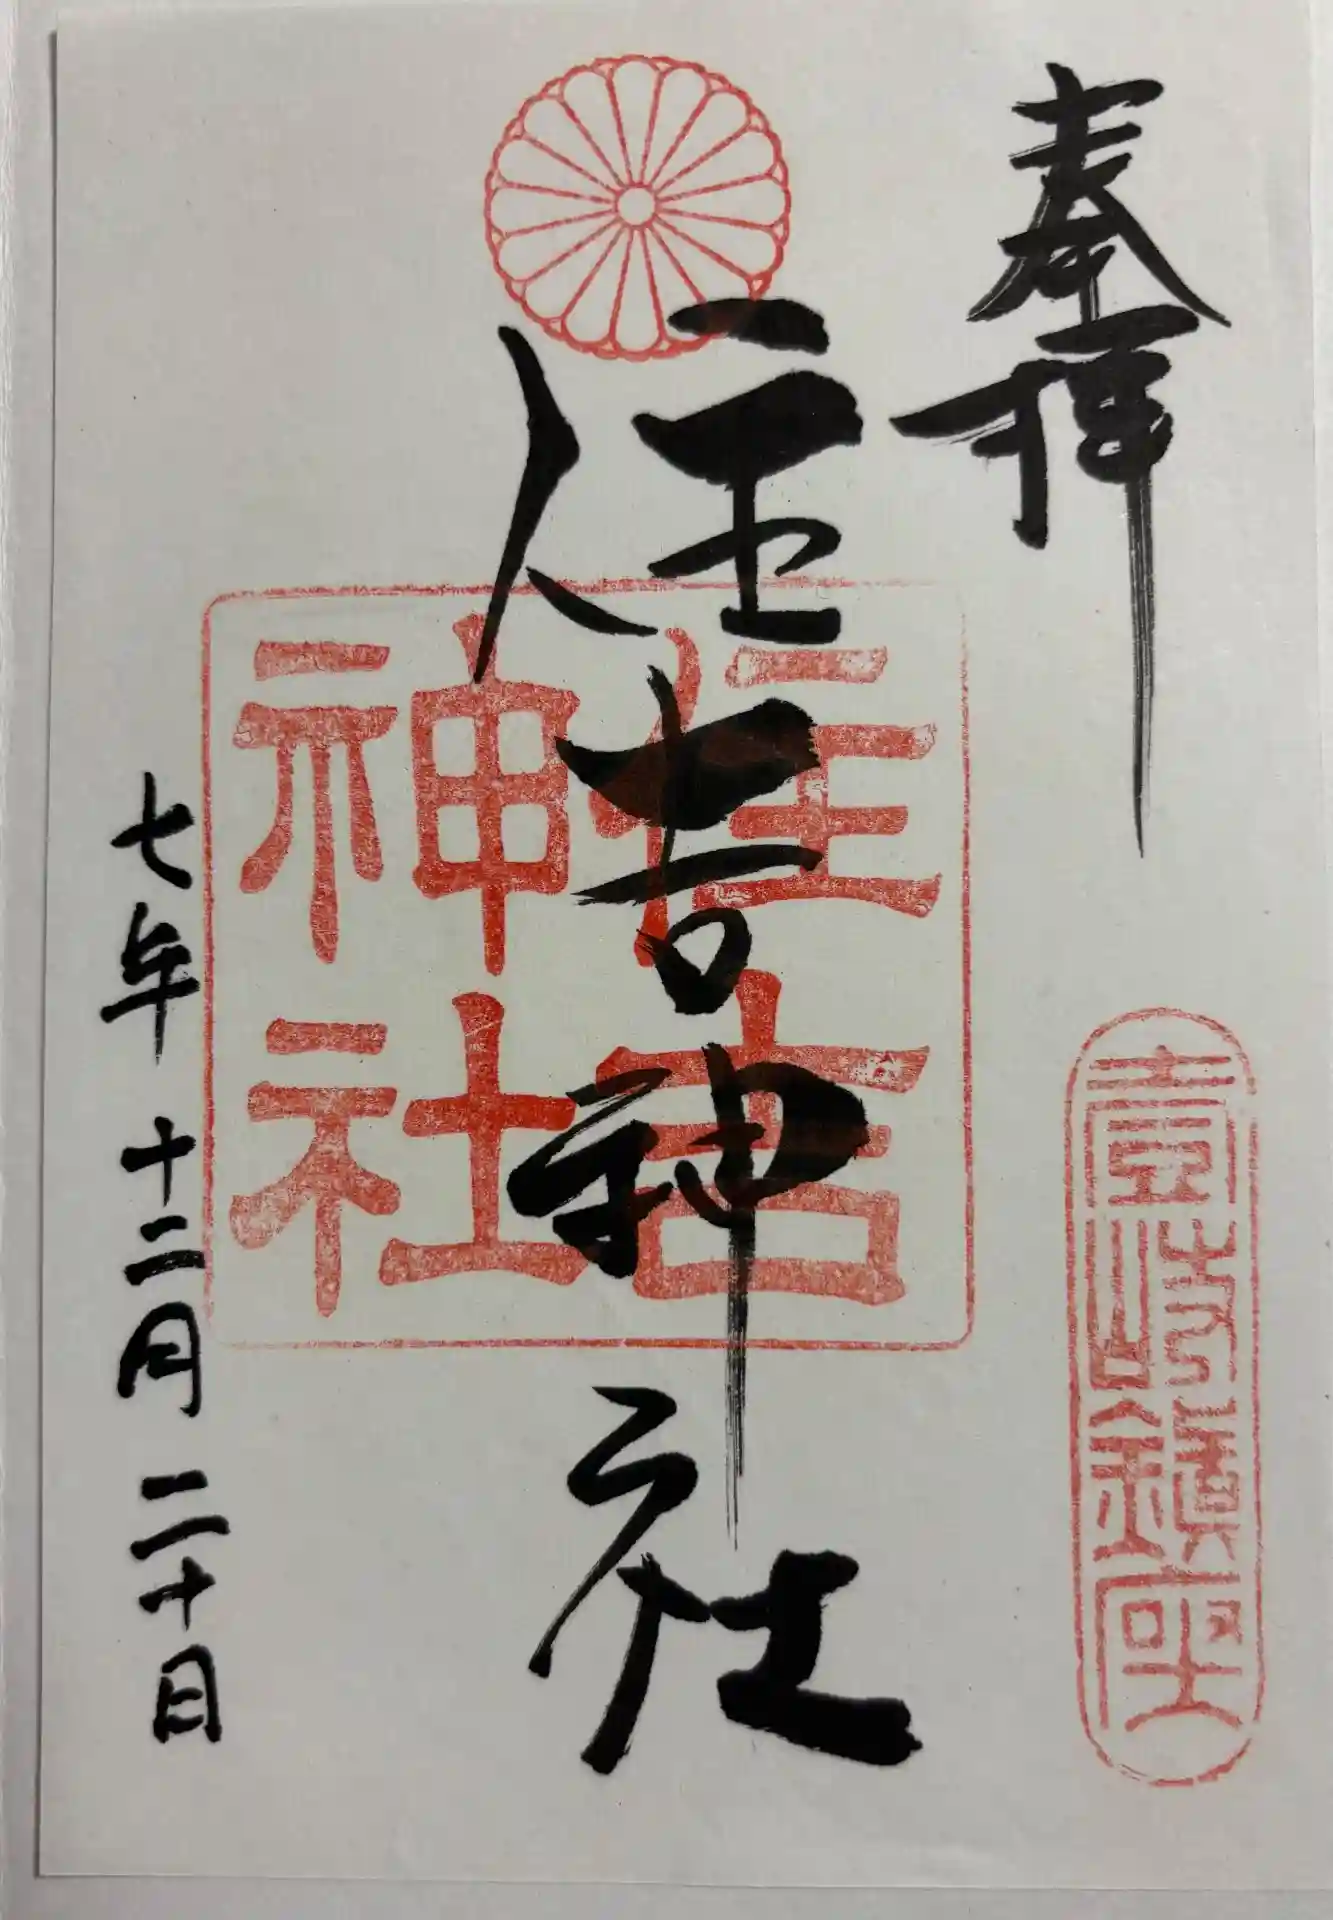 奉拝
壱岐鎮座
住吉神社
住吉
神社
七年 十二月 二十日